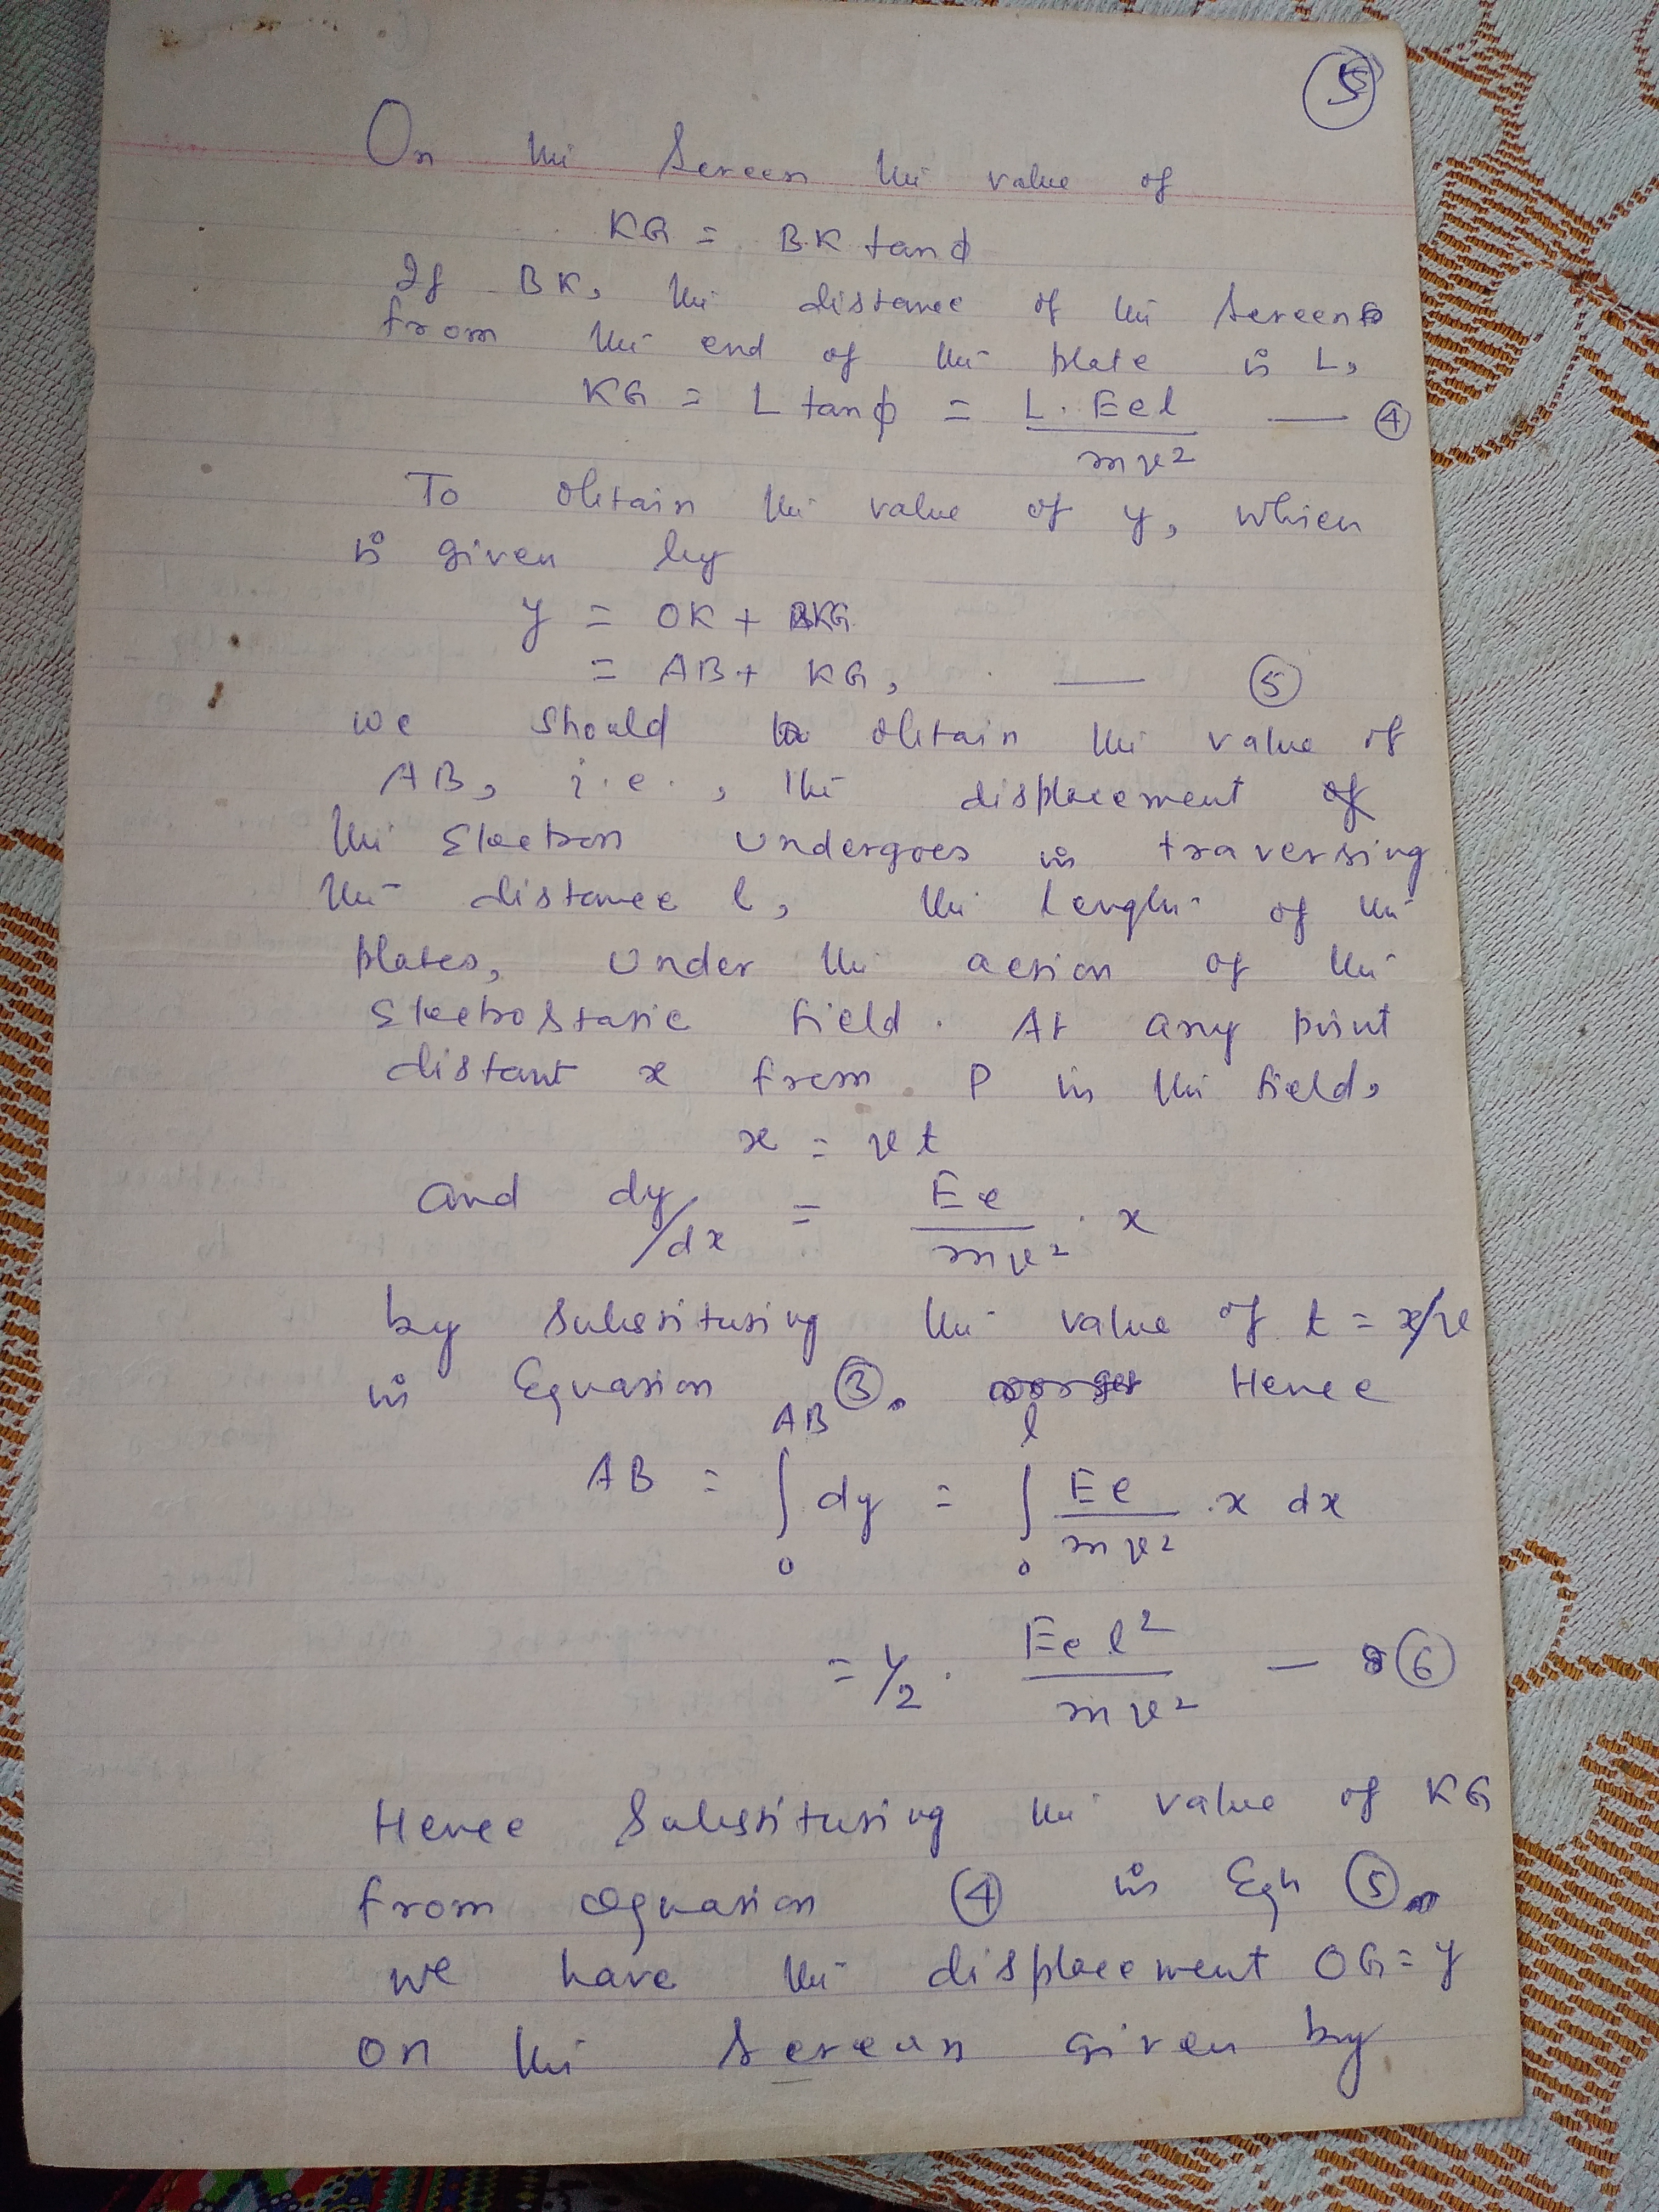 5
On the Screen the value of
KG = BK tanϕ
If BK, the distance of the Screen
from the end of the plate is L,
KG = L tanϕ = L. Eel / mv² — ④
To obtain the value of y, which
is given by
y = OK + KG
= AB + KG, — ⑤
we should obtain the value of
AB, i.e., the displacement of
the Electron undergoes in traversing
the distance l, the length of the
plates, under the action of the
Electrostatic field. At any point
distant x from P in the field,
x = vt
and dy/dx = Ee / mv² . x
by substituting the value of t = x/v
in Equation ③. Hence
AB = ∫₀ᴬᴮ dy = ∫₀ˡ Ee / mv² . x dx
= 1/2 . Eel² / mv² — ⑥
Hence Substituting the value of KG
from equation ④ in Eqn ⑤
we have the displacement OG = y
on the Screen given by